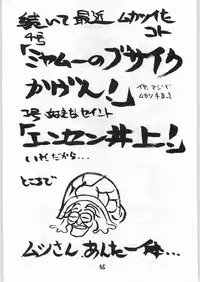 続いて最近 ムカツイた
コト
4号
「ミャムーのブサイク
かげん!」
イヤ、マジで
ムカツキまっせ
2号 好きなセイント
「エンセン井上!」
いれだから…
ところで
ムツさん、あんた一体…